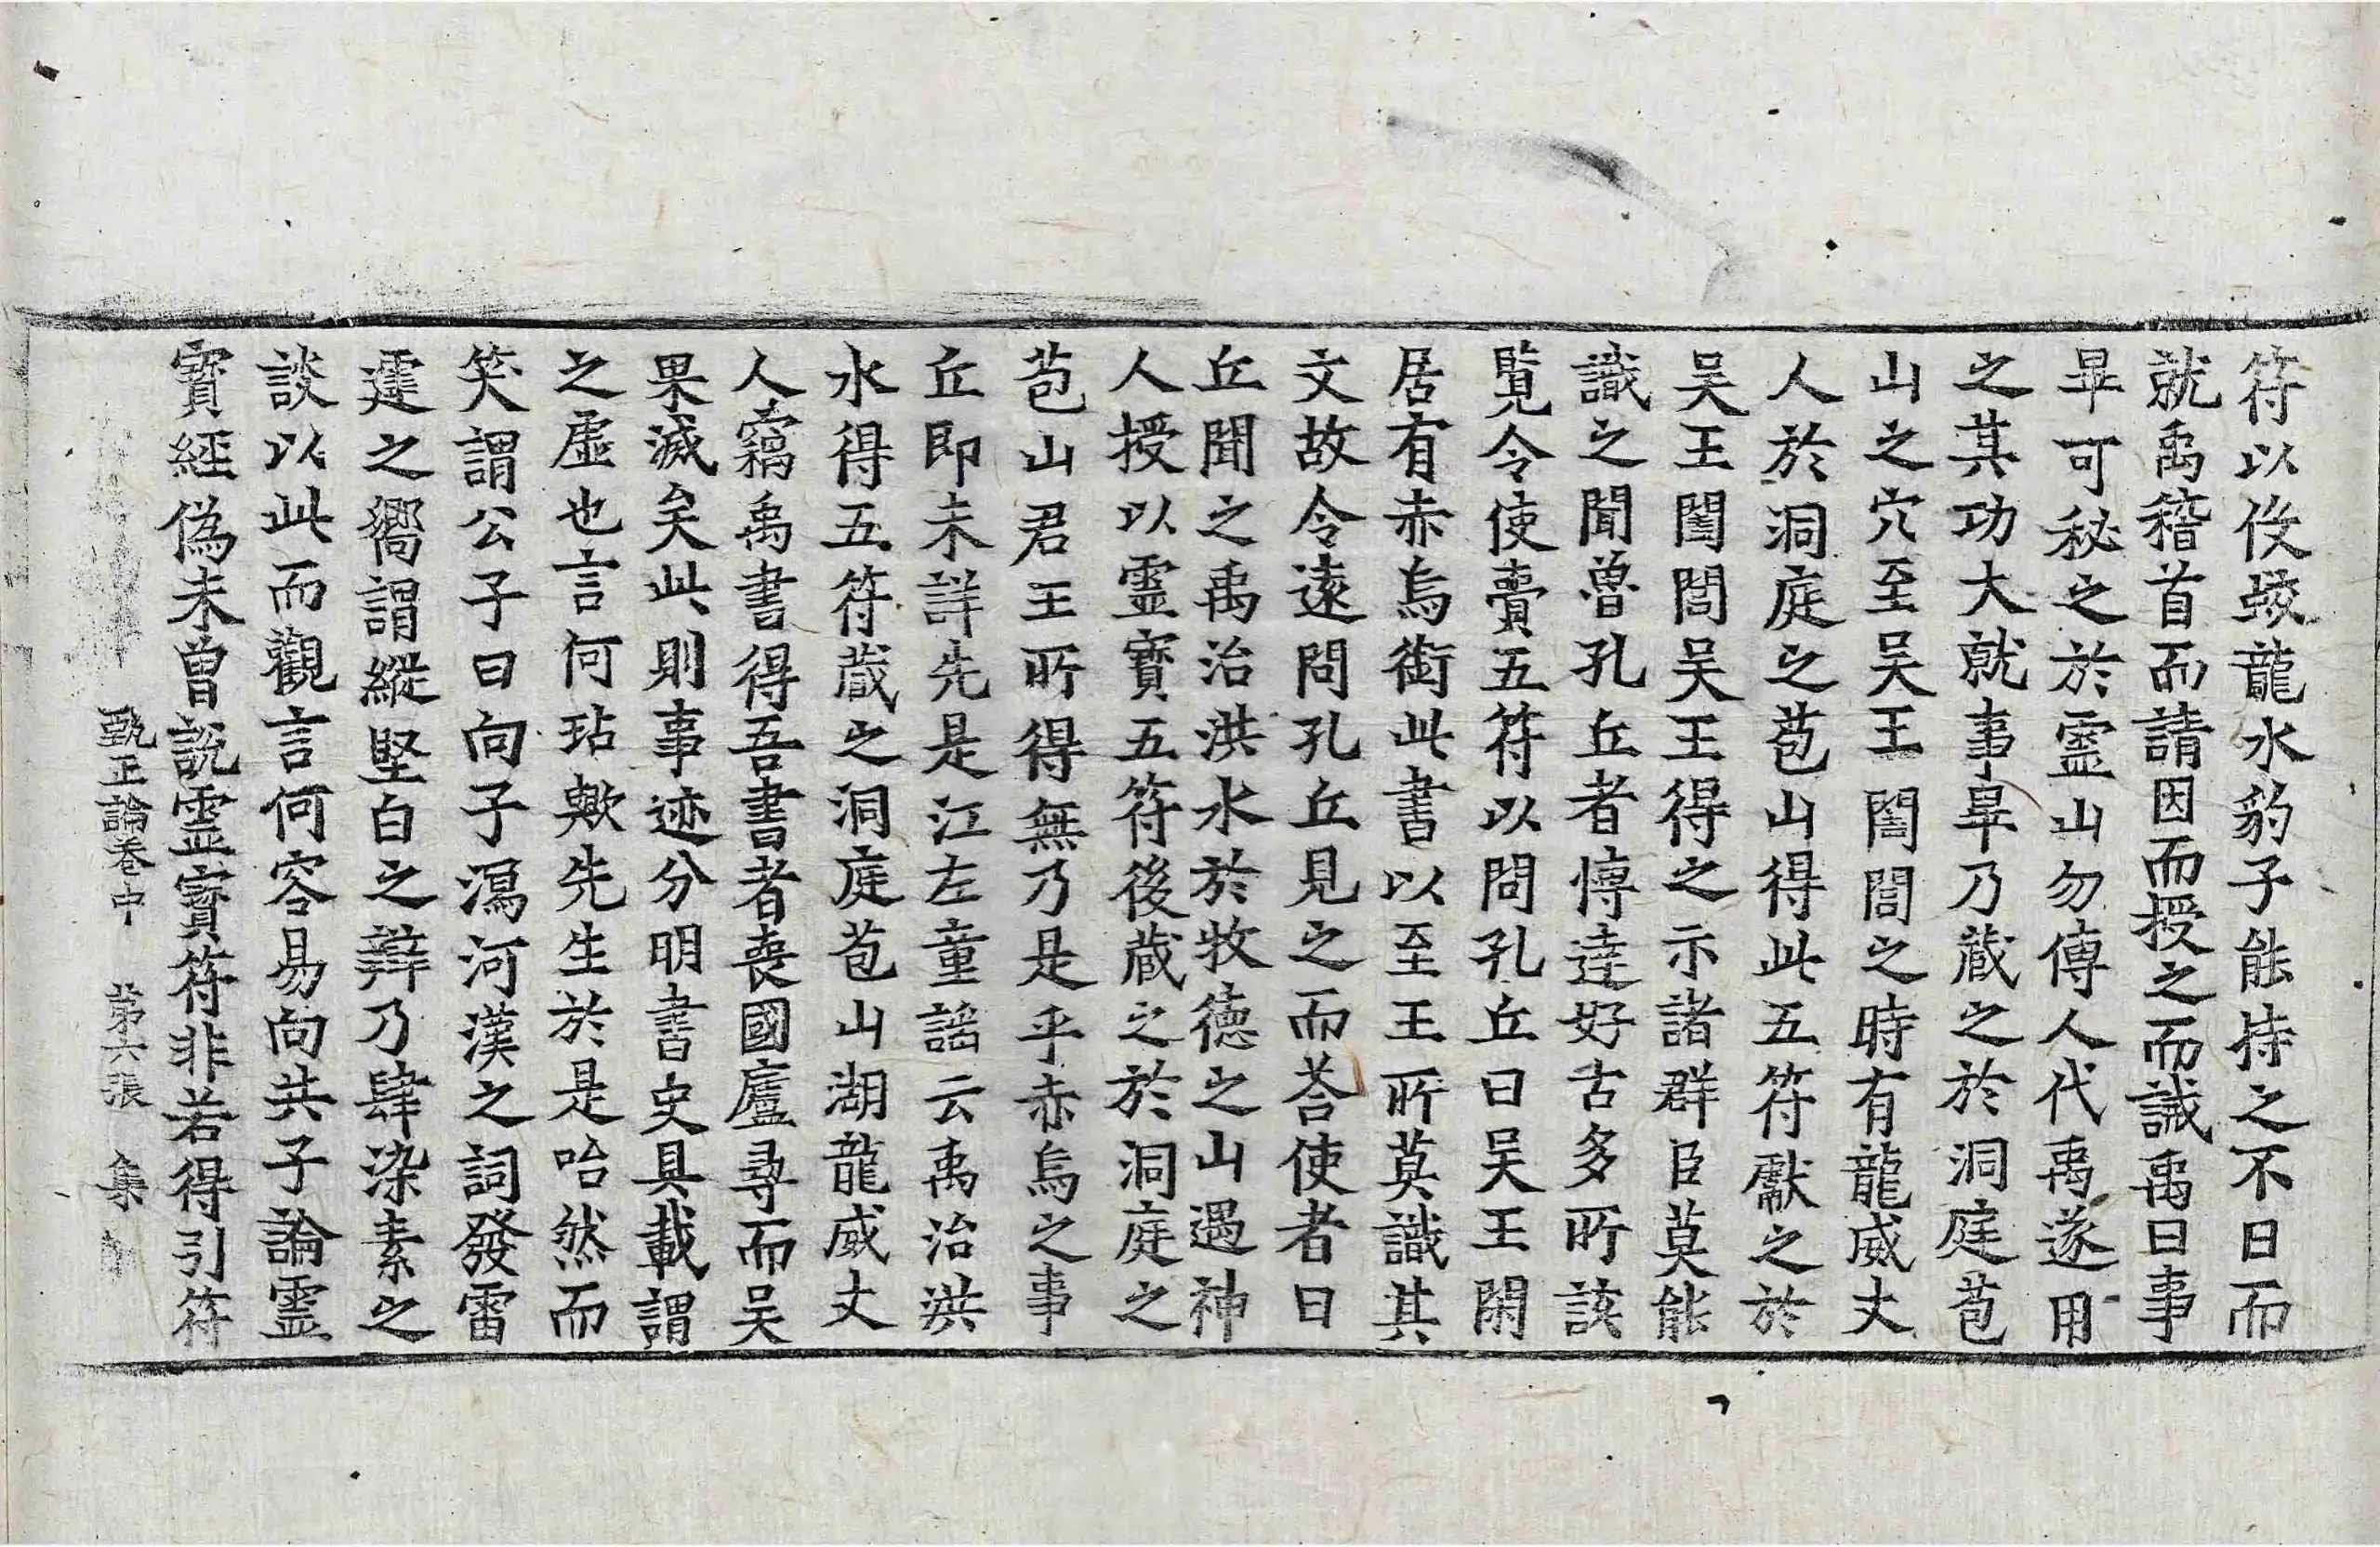 符以伇蛟龍水豹子能持之不日而
就禹稽首而請因而授之而誡禹曰事
畢可秘之於靈山勿傳人代禹遂用
之其功大就事畢乃蔵之於洞庭苞
山之穴至吴王闔閭之時有龍威丈
人於洞庭之苞山得此五符獻之於
吴王闔閭吴王得之示諸群臣莫能
識之聞魯孔丘者愽達好古多所該
覧令使賷五符以問孔丘曰吴王閑
居有赤烏銜此書以至王所莫識其
文故令遠問孔丘見之而荅使者曰
丘聞之禹治洪水於牧德之山遇神
人授以靈寶五符後蔵之於洞庭之
苞山君王所得無乃是乎赤烏之事
丘即未詳先是江左童謡云禹治洪
水得五符蔵之洞庭苞山湖龍威丈
人竊禹書得吾書者喪國廬尋而吴
果滅矣此則事迹分明書史具載謂
之虚也言何玷歟先生於是咍然而
笑謂公子曰向子瀉河漢之詞發雷
霆之嚮謂縱堅白之辯乃肆染素之
談以此而觀言何容易向共子論靈
寳經偽未曾説靈寳符非若得引符
甄正論卷中 第六張 集